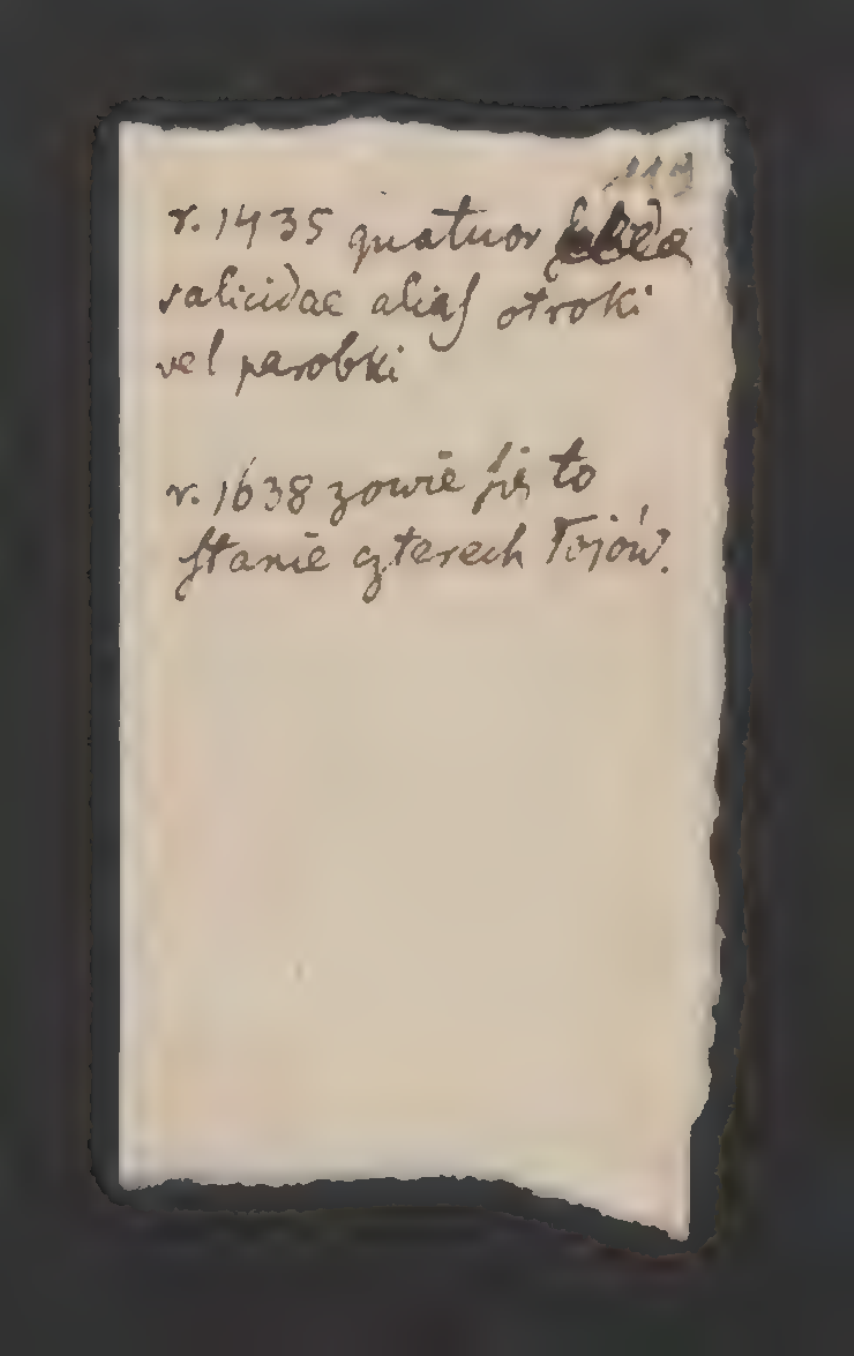 119
r. 1435 quatuor
salicidae alias otroki
vel parobki
r. 1638 zowie się to
stanie czterech Tojów.